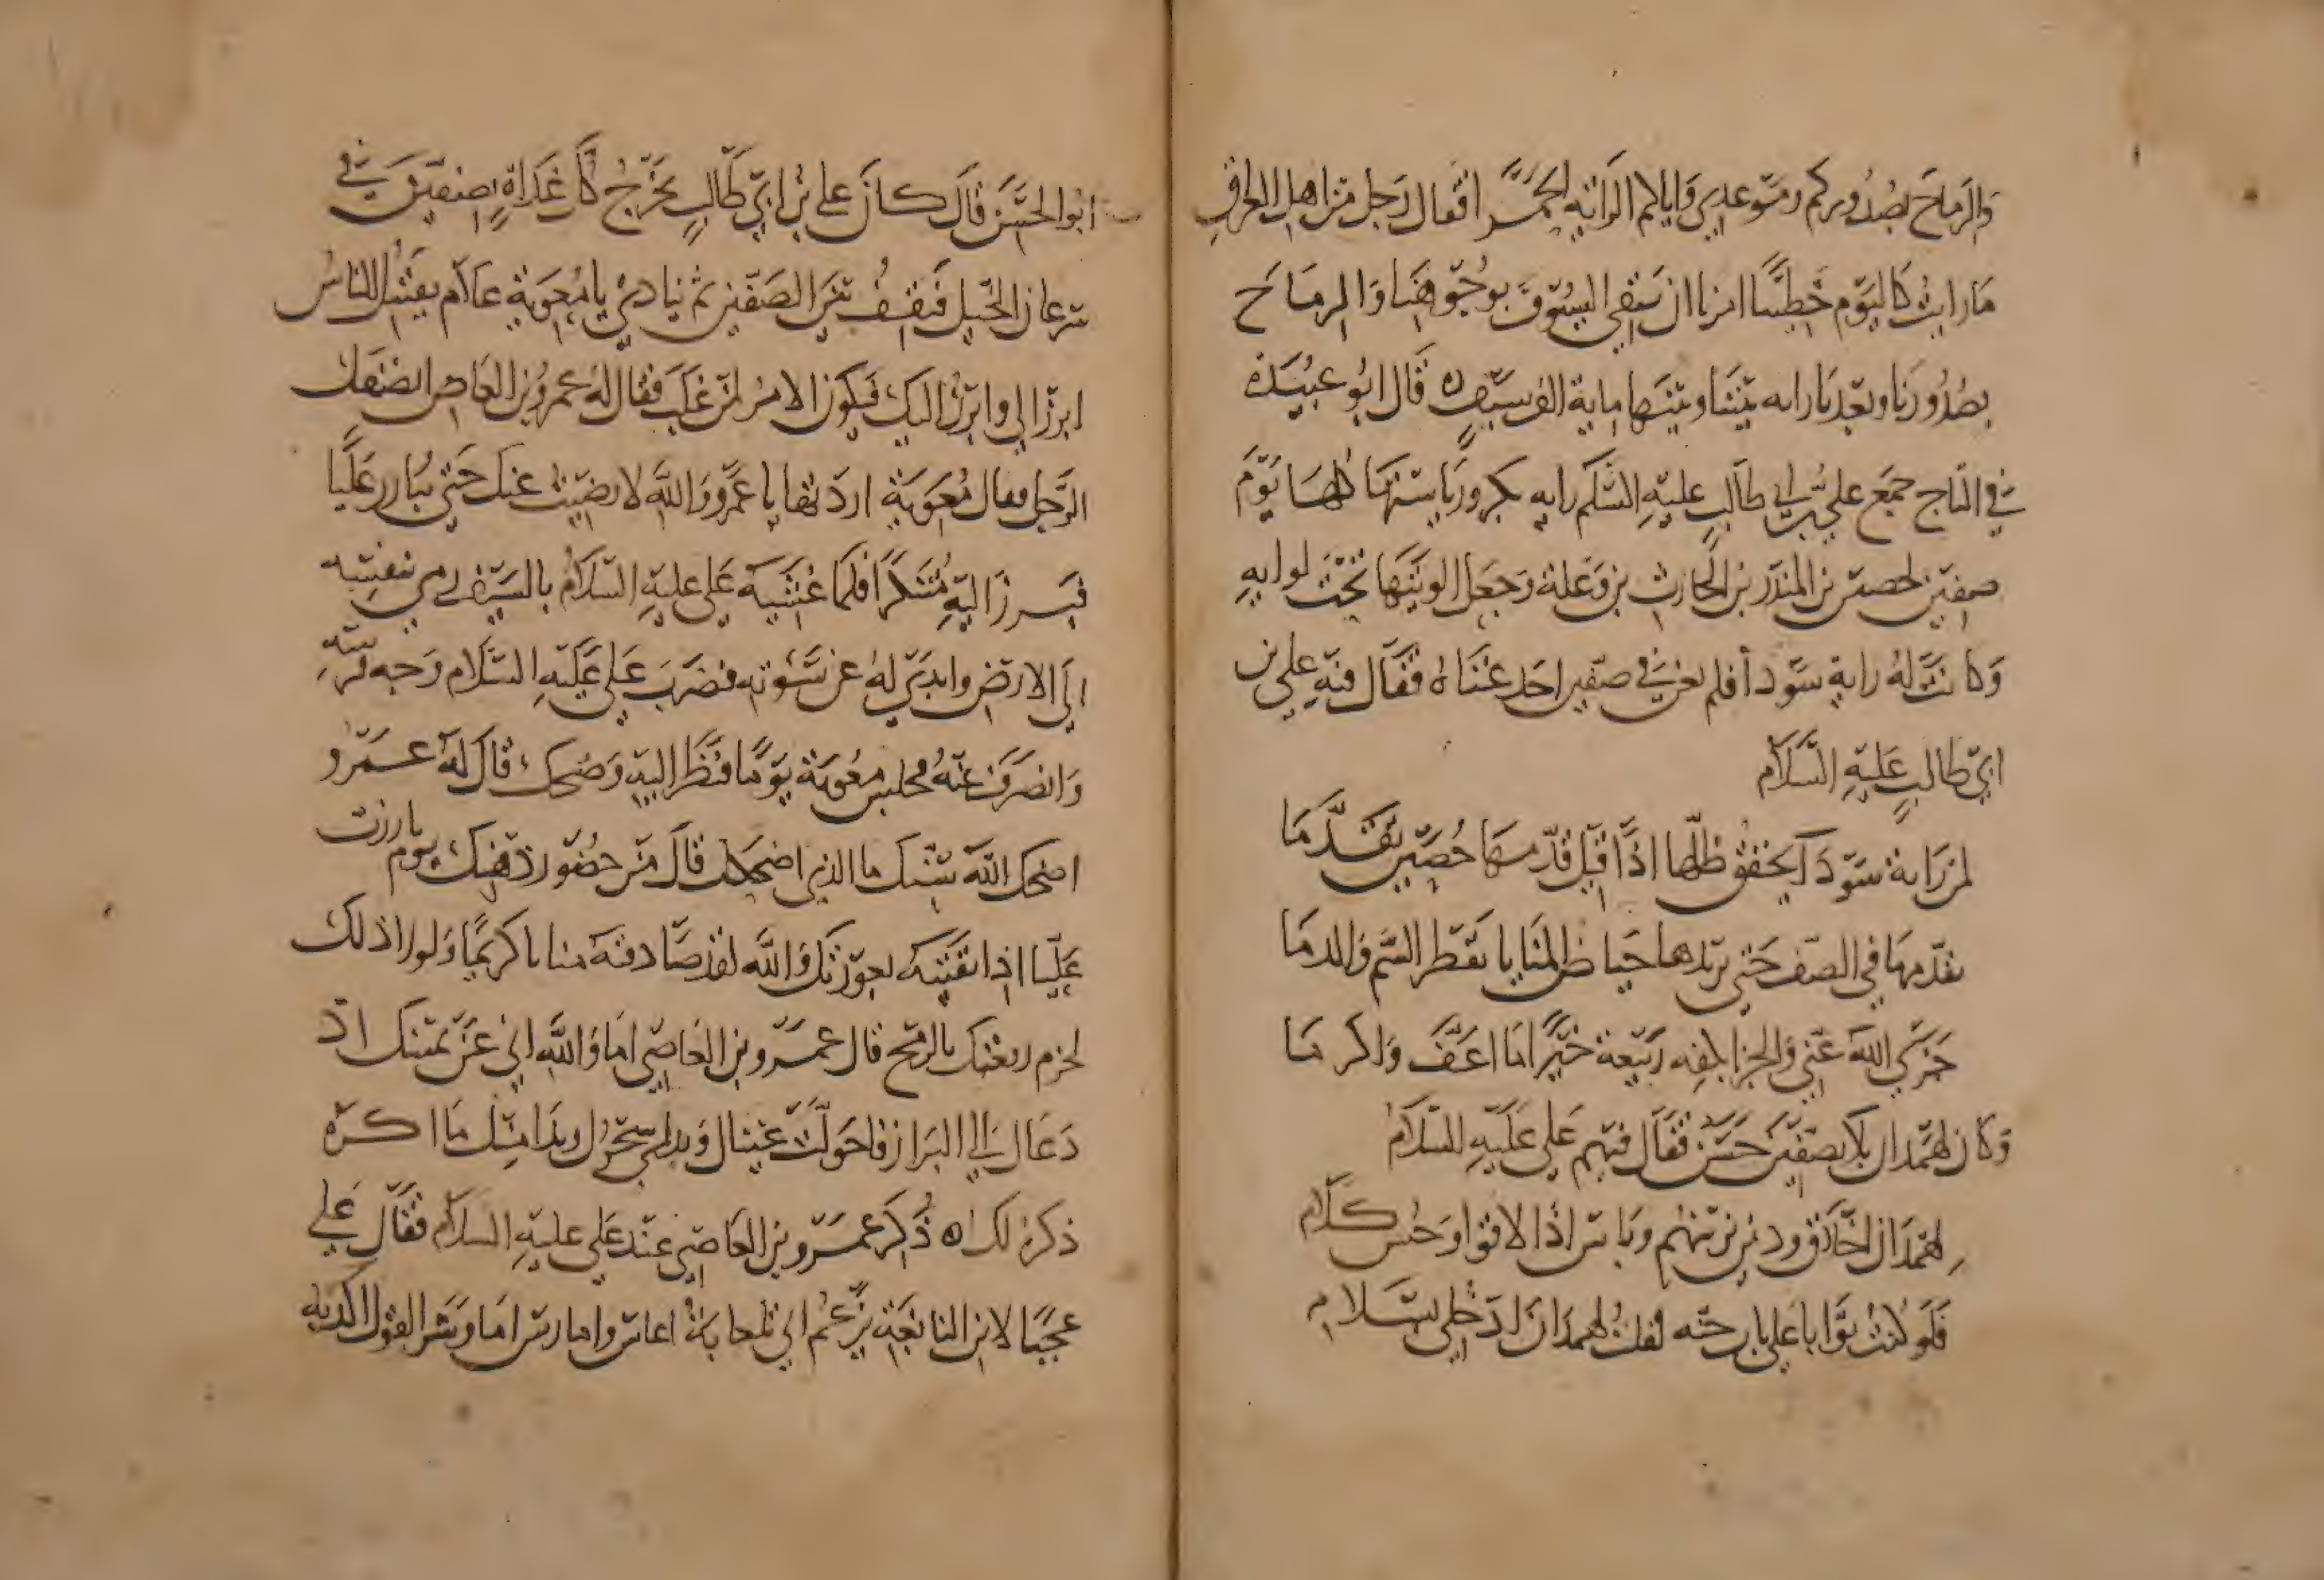 والرماح بصدوركم وموعدي واياكم الراية الحمرا فقال رجل من اهل العراق
ما رايت كاليوم خطيبا امرنا ان نتقي السيوف بوجوهنا والرماح
بصدورنا ويعدنا راية بيننا وبينها ماية الف سيف ه قال ابو عبيدة
في التاج جمع علي بن ابي طالب عليه السلم راية بكر ورياستها كلها يوم
صفين لحصين بن المنذر بن الحارث بن وعلة وجعل الويتها تحت لوايه
وكانت له راية سودا فلم يغن في صفين احد غناه فقال فيه علي بن
ابي طالب عليه السلام
لمن راية سودا يخفق ظلها اذا قيل قدمها حصين تقدما
يقدمها في الصف حتى يردها حياض المنايا تقطر السم والدما
جزى الله عني والجزا بكفه ربيعة خيرا ما اعف واكرما
وكان لهمدان بلا بصفين حسن فقال فيهم علي عليه السلام
لهمدان اخلاق ودين يزينهم وباس اذا لاقوا وحسن كلام
فلو كنت بوابا على باب جنة لقلت لهمدان ادخلي بسلام
ابو الحسن قال كان علي بن ابي طالب يخرج كل غداة بصفين في
سرعان الخيل فيقف بين الصفين ثم ينادي يا معوية علام يقتتل الناس
ابرز الي وابرز اليك فيكون الامر لمن غلب فقال له عمرو بن العاص انصفك
الرجل فقال معوية اردتها يا عمرو والله لا رضيت عنك حتى تبارز عليا
فبرز اليه متنكرا فلما غشيه علي عليه السلام بالسيف رمى بنفسه
الى الارض وابدى له عن سوته فضرب علي عليه السلام وجه فرسه
وانصرف عنه فجلس معوية يوما فنظر اليه وضحك قال له عمرو
اضحك الله سنك ما الذي اضحكك قال من حضور ذهنك يوم بارزت
عليا اذ اتقيته بعورتك والله لقد صادفته منانا كريما ولولا ذلك
لخرم رفغيك بالرمح قال عمرو بن العاصي اما والله اني عن يمينك اذ
دعاك الى البراز فاحولت عيناك وبدا سحرك وبدا منك ما اكره
ذكره لك ه ذكر عمرو بن العاصي عند علي عليه السلام فقال علي
عجبا لابن النابغة يزعم اني تلعابة اعافس وامارس اما وشر القول اكذبه